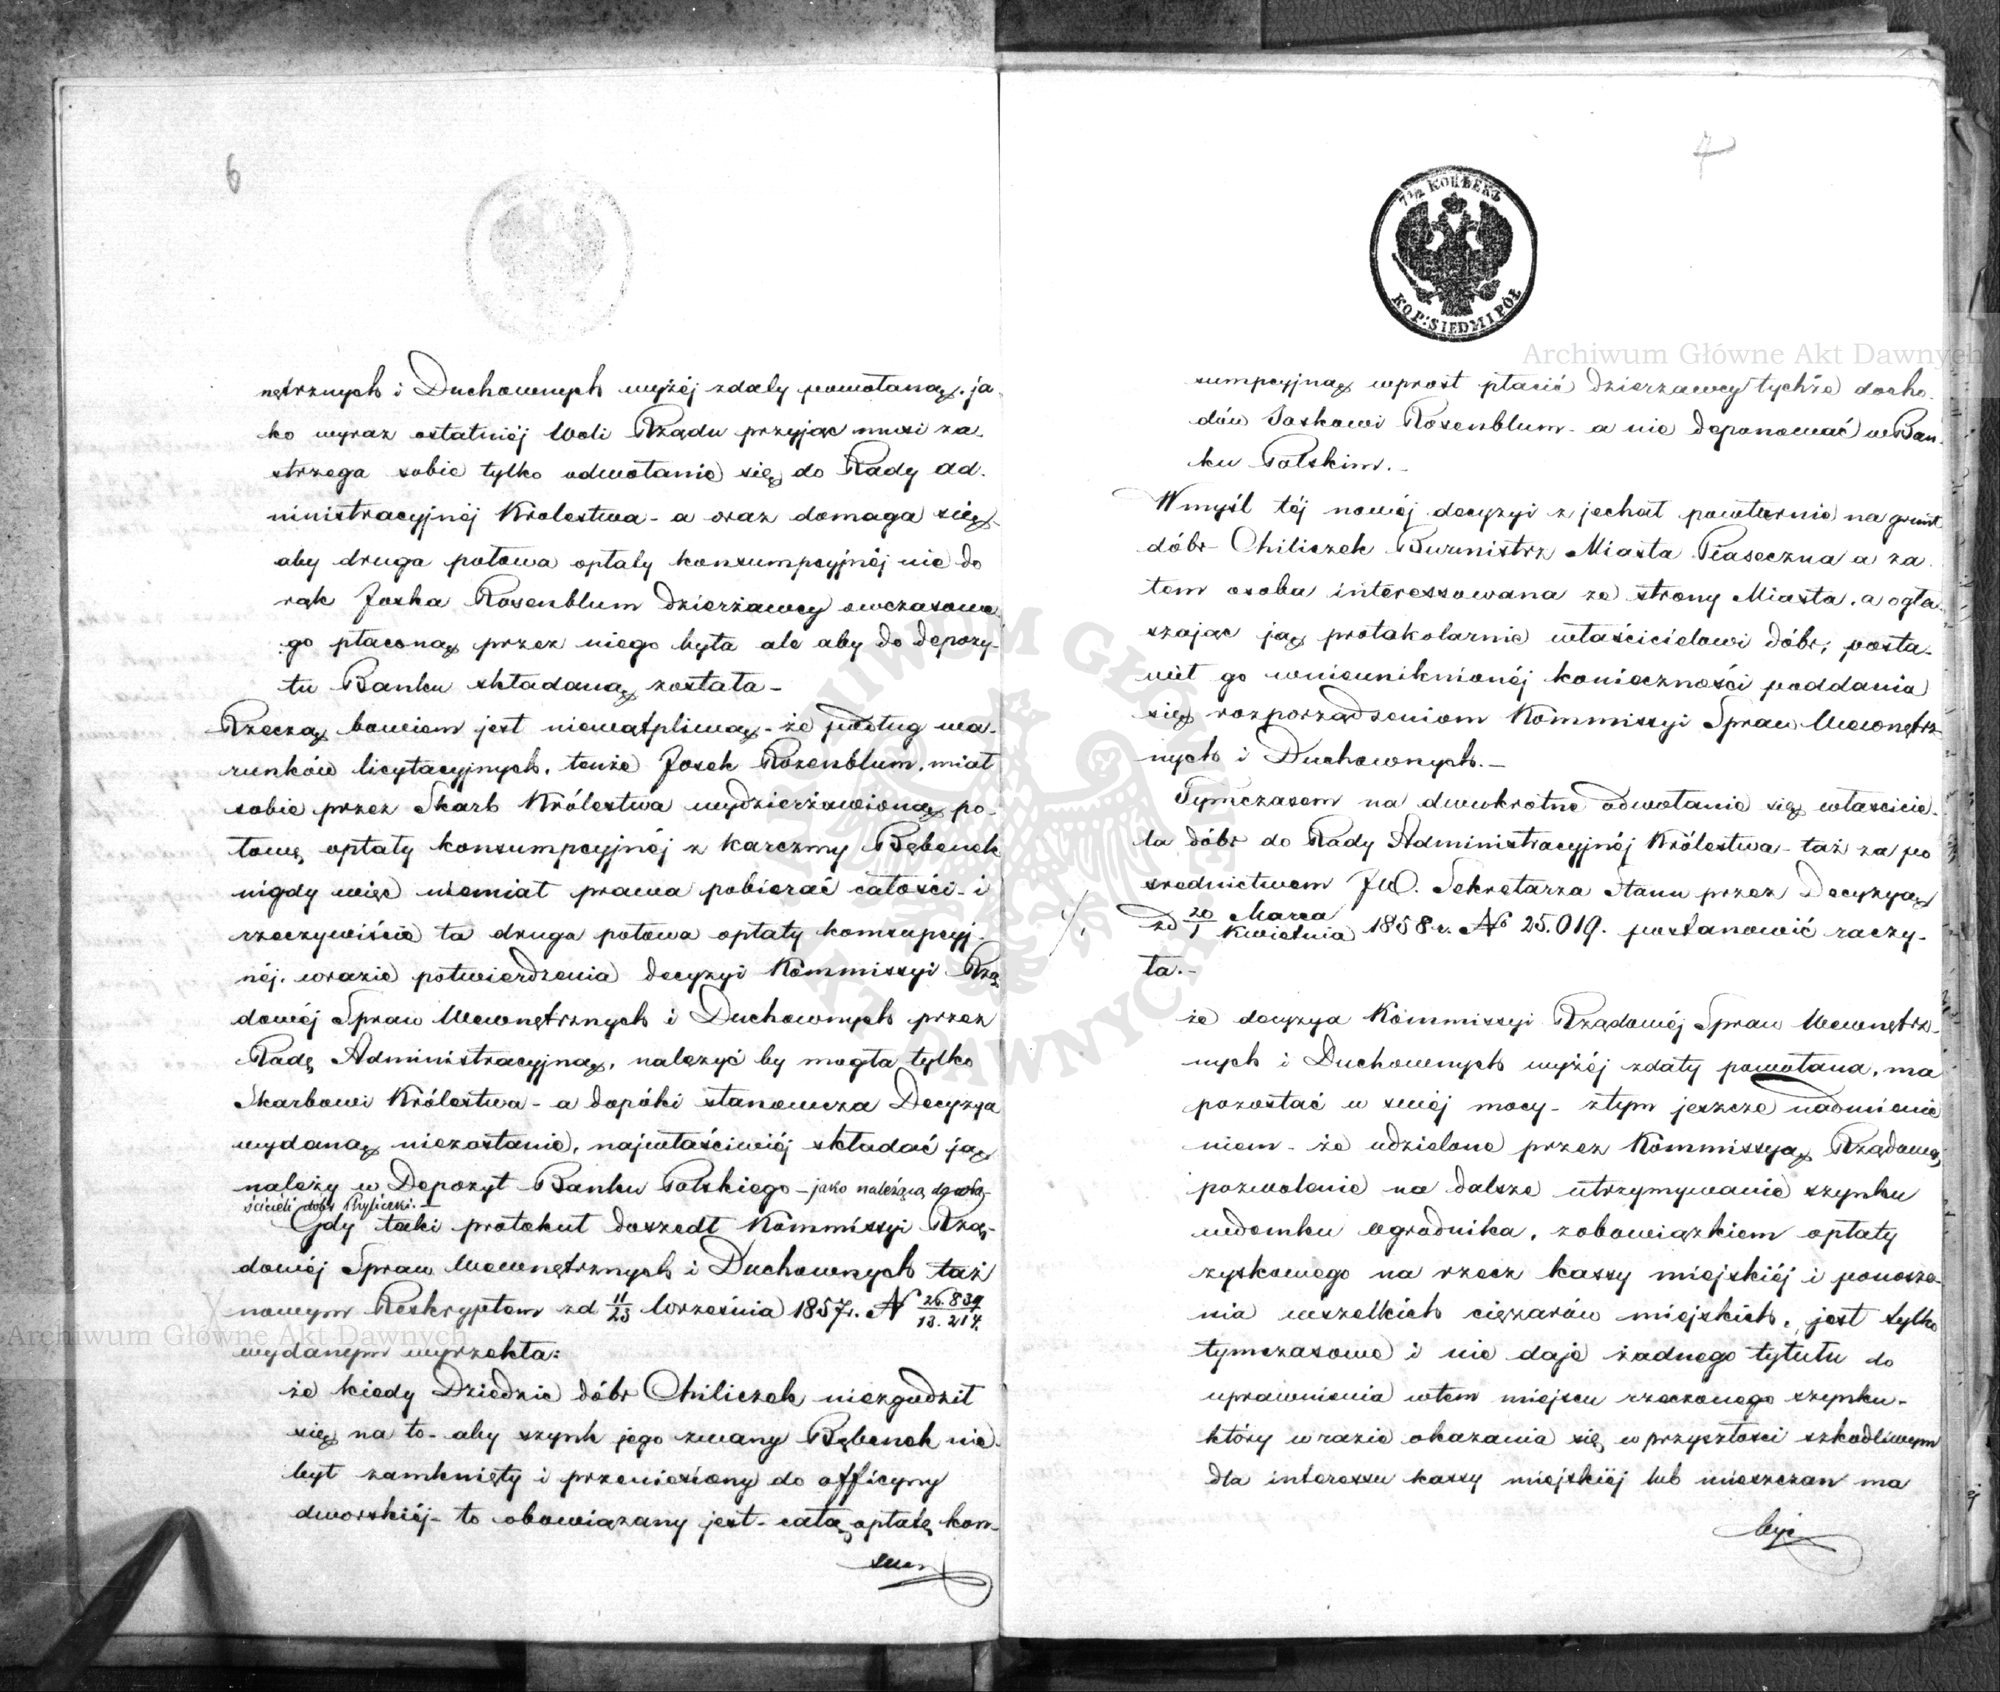 6
nętrznych i Duchownych wyżéj zdaty powołaną, ja-
ko wyraz ostatniéj Woli Rządu przyjąć musi za-
strzega sobie tylko odwołanie się do Rady Ad-
ministracyjnéj Królestwa - a oraz domaga się,
aby druga połowa opłaty konsumpcyjnéj nie do
rąk Joska Rosenblum dzierżawcy owczasowe
go płaconą przez niego była ale aby do depozy-
tu Banku składaną została -
Rzeczą bowiem jest niewątpliwą - że podług wa-
runków licytacyjnych, tenże Josek Rosenblum, miał
sobie przez Skarb Królestwa wydzierżawioną po-
łowę opłaty konsumpcyjnéj z karczmy Bębenek
nigdy więc niemiał prawa pobierać całości - i
rzeczywiście ta druga połowa opłaty komsupcyj-
néj, wrazie potwierdzenia decyzyi Kommissyi Rzą
dowéj Spraw Wewnętrznych i Duchownych przez
Radę Administracyjną, należyć by mogła tylko
Skarbowi Królestwa - a dopóki stanowcza Decyzya
wydaną niezostanie, najwłaściwiéj składać ją
należy w Depozyt Banku Polskiego - jako należącą do wła-
ścicieli dóbr Chyliczki. -
Gdy taki protokuł doszedł Kommissyi Rzą-
dowéj Spraw Wewnętrznych i Duchownych taż
nowym Reskryptem zd 11/23 Września 1857 r. N 26.839/13.214.
wydanym wyrzekła:
że kiedy Dziedzic dóbr Chiliczek niezgodził
się na to - aby szynk jego zwany Bębenek nie
był zamknięty i przeniesiony do officyny
dworskiéj - to obowiązany jest - całą opłatę kon-
sum
7
7 1/2 КОПѢЕКЪ
KOP: SIEDM I PÓŁ
sumpcyjną wprost płacić dzierżawcy tychże docho-
dów Joskowi Rosenblum - a nie deponować w Ban-
ku Polskim. -
W myśl téj nowéj decyzyi zjechał powtórnie na grunt
dóbr Chiliczek Burmistrz Miasta Piaseczna a za
tem osoba interessowana ze strony Miasta, a ogła-
szając ją protokolarnie właścicielowi dóbr, posta-
wił go wnieuniknionéj konieczności poddania
się rozporządzeniom Kommissyi Spraw Wewnętrz-
nych i Duchownych. -
Tymczasem na dwukrotne odwołanie się właścicie-
la dóbr do Rady Administracyjnéj Królestwa - taż za po
średnictwem JW. Sekretarza Stanu przez Decyzyą
zd 20 Marca/1 Kwietnia 1858 r. No 25.019. postanowić raczy-
ła. -
że decyzya Kommissyi Rządowéj Spraw Wewnętrz-
nych i Duchownych wyżéj zdaty powołana, ma
pozostać w swéj mocy - ztym jeszcze nadmienie
niem - że udzielone przez Kommissyą Rządową,
pozwolenie na dalsze utrzymywanie szynku
wdomku ogrodnika, zobowiązkiem opłaty
zyskowego na rzecz kassy miejskiéj i ponosze-
nia wszelkich ciężarów miejskich, jest tylko
tymczasowe i nie daje żadnego tytułu do
uprawnienia wtem miejscu rzeczonego szynku -
który w razie okazania się w przyszłości szkodliwym
dla interessu kassy miejskiéj lub mieszczan ma
być
Archiwum Główne Akt Dawnych
Archiwum Główne Akt Dawnych
ARCHIWUM GŁÓWNE AKT DAWNYCH